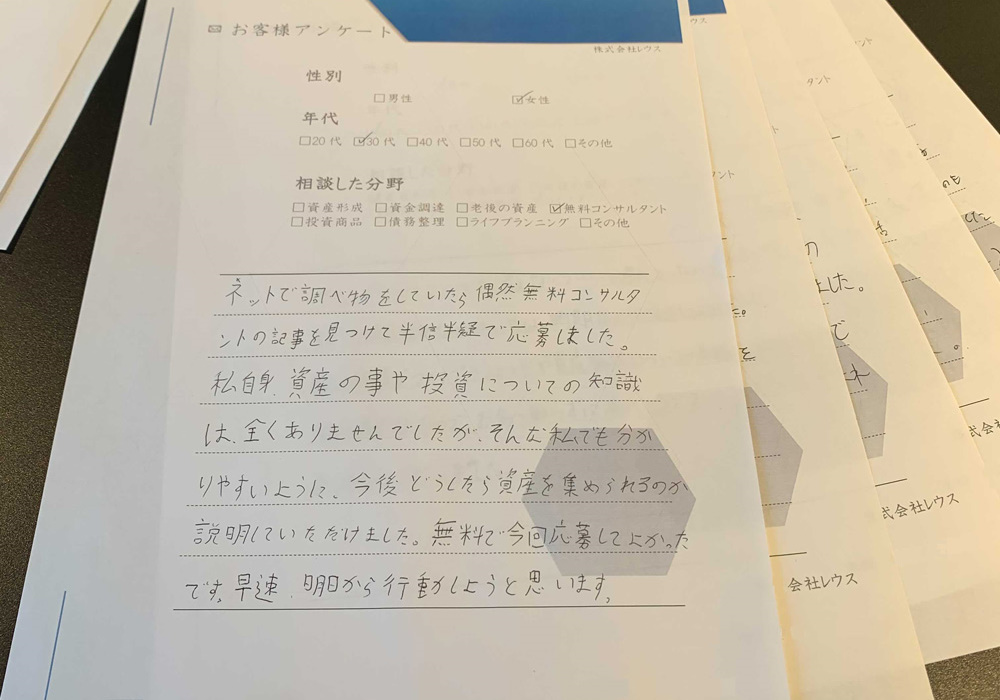 ✉ お客様アンケート
株式会社レウス
性別
□男性 ☑女性
年代
□20代 ☑30代 □40代 □50代 □60代 □その他
相談した分野
□資産形成 □資金調達 □老後の資産 ☑無料コンサルタント
□投資商品 □債務整理 □ライフプランニング □その他
ネットで調べ物をしていたら偶然無料コンサルタ
ントの記事を見つけて半信半疑で応募しました。
私自身、資産の事や投資についての知識
は、全くありませんでしたが、そんな私でも分か
りやすいように、今後どうしたら資産を集められるのか
説明していただけました。無料で今回応募してよかった
です。早速、明日から行動しようと思います。
ウス
ント
タント
ント
の
した。
で
れ
を
会社レウス
式会社レウス
式会社